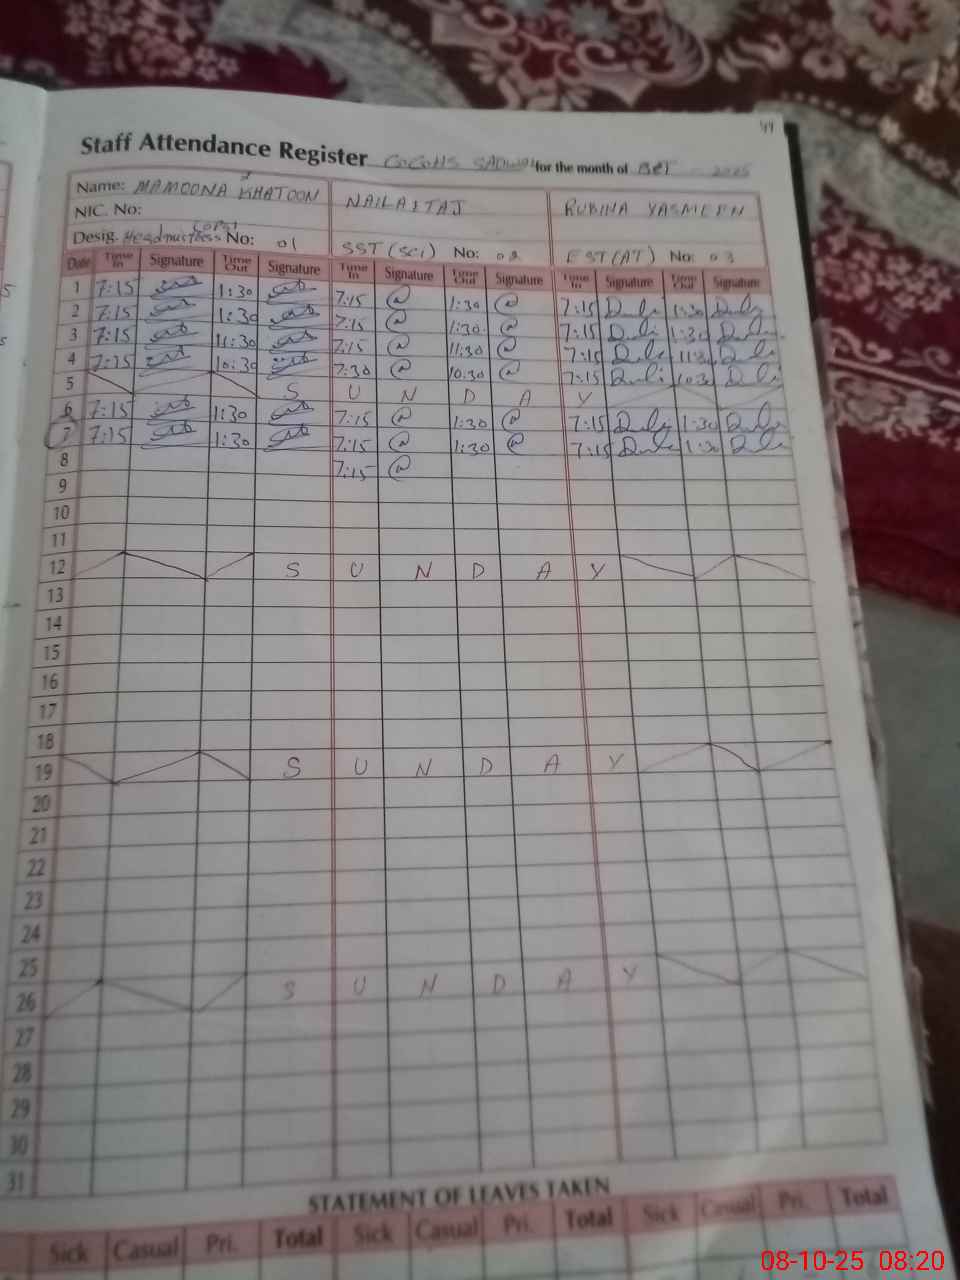 44
Staff Attendance Register GGGHS SADWAL for the month of Oct 2025
Name: MAMOONA KHATOON NAILA ITAJ RUBINA YASMEEN
NIC. No:
Desig. Headmistress No: 01 SST (Sci) No: 02 EST (AT) No: 03
Date Time In Signature Time Out Signature Time In Signature Time Out Signature Time In Signature Time Out Signature
1 7:15 1:30 7:15 @ 1:30 @ 7:15 1:30
2 7:15 1:30 7:15 @ 1:30 @ 7:15 1:30
3 7:15 11:30 7:15 @ 11:30 @ 7:15 11:30
4 7:15 10:30 7:30 @ 10:30 @ 7:15 10:30
5 S U N D A Y
6 7:15 1:30 7:15 @ 1:30 @ 7:15 1:30
7 7:15 1:30 7:15 @ 1:30 @ 7:15 1:30
8 7:15 @
9
10
11
12 S U N D A Y
13
14
15
16
17
18
19 S U N D A Y
20
21
22
23
24
25
26 S U N D A Y
27
28
29
30
31
STATEMENT OF LEAVES TAKEN
Sick Casual Pri. Total Sick Casual Pri. Total Sick Casual Pri. Total
08-10-25 08:20